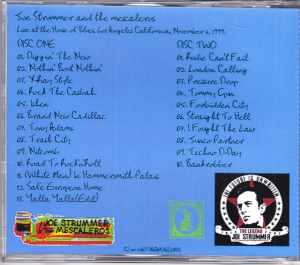 Joe Strummer and the mescaleros
Live at the House of Blues, Los Angeles California, November 6, 1999
DISC ONE
01. Diggin' The New
02. Nothin' Bout Nothin'
03. X-Ray Style
04. Rock The Casbah
05. Iden
06. Brand New Cadillac
07. Tony Adams
08. Trash City
09. Nitcomb
10. Road To Rock'n'Roll
11. (White Man) In Hammersmith Palais
12. Safe European Home
13. Yalla Yalla (End)
DISC TWO
01. Rudie Can't Fail
02. London Calling
03. Pressure Drop
04. Tommy Gun
05. Forbidden City
06. Straight To Hell
07. I Fought The Law
08. Junco Partner
09. Techno D-Day
10. Bankrobber
JOE STRUMMER
MESCALEROS
THE FUTURE IS UNWRITTEN
THE LEGEND
JOE STRUMMER